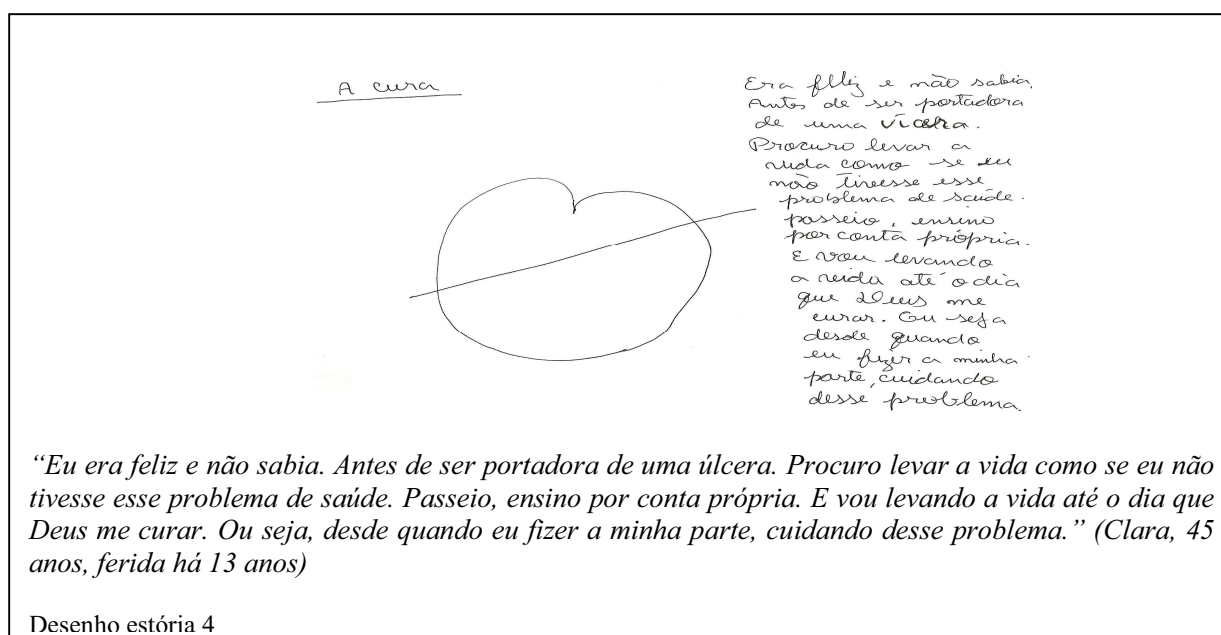 A cura
Era feliz e não sabia.
Antes de ser portadora
de uma
Procuro levar a
vida como se eu
não tivesse esse
problema de saúde.
passeio, ensino
por conta própria.
E vou levando
a vida até o dia
que Deus me
curar. Ou seja
desde quando
eu fizer a minha
parte, cuidando
desse problema.
“Eu era feliz e não sabia. Antes de ser portadora de uma úlcera. Procuro levar a vida como se eu não
tivesse esse problema de saúde. Passeio, ensino por conta própria. E vou levando a vida até o dia que
Deus me curar. Ou seja, desde quando eu fizer a minha parte, cuidando desse problema.” (Clara, 45
anos, ferida há 13 anos)
Desenho estória 4